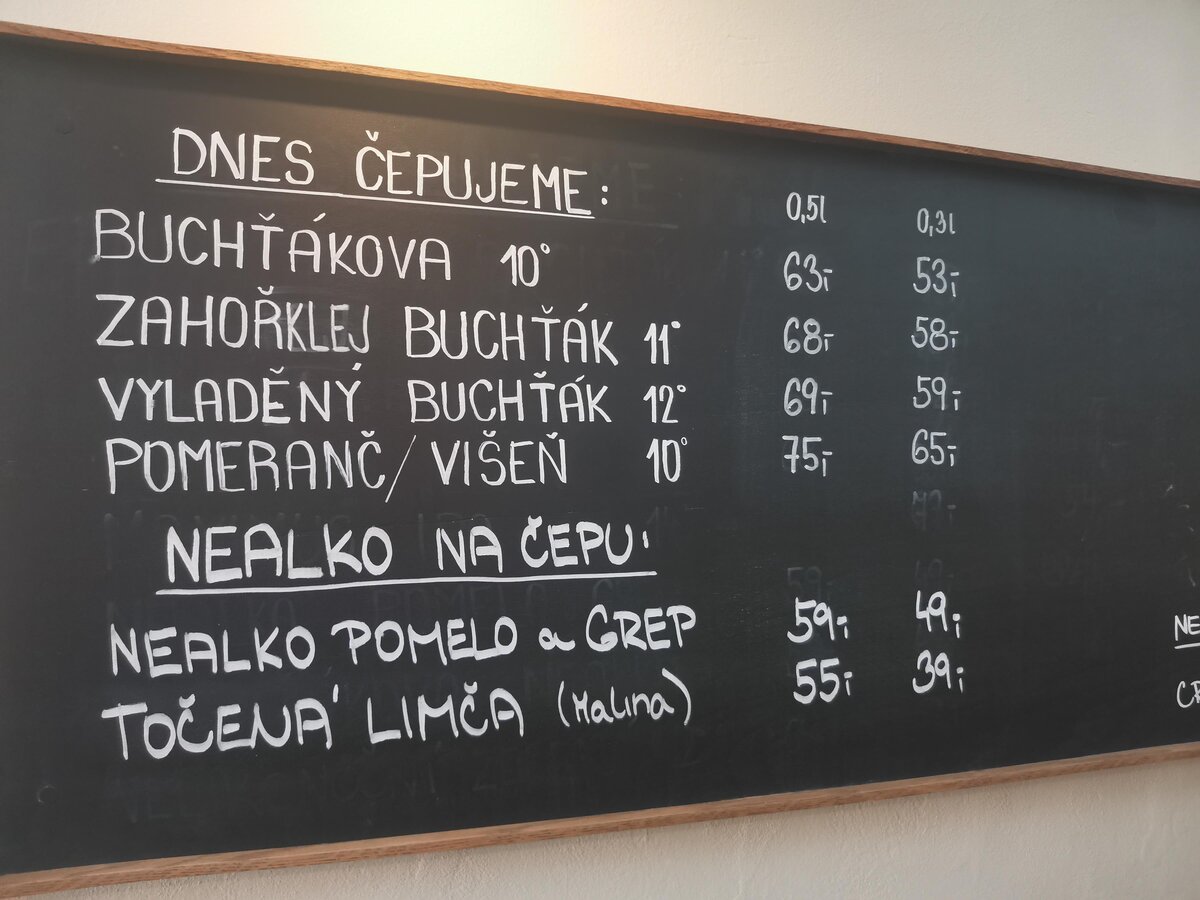 DNES ČEPUJEME:
0,5l 0,3l
BUCHŤÁKOVA 10° 63,- 53,-
ZAHOŘKLEJ BUCHŤÁK 11° 68,- 58,-
VYLADĚNÝ BUCHŤÁK 12° 69,- 59,-
POMERANČ/VIŠEŇ 10° 75,- 65,-
NEALKO NA ČEPU:
NEALKO POMELO a GREP 59,- 49,-
TOČENÁ LIMČA (Malina) 55,- 39,-